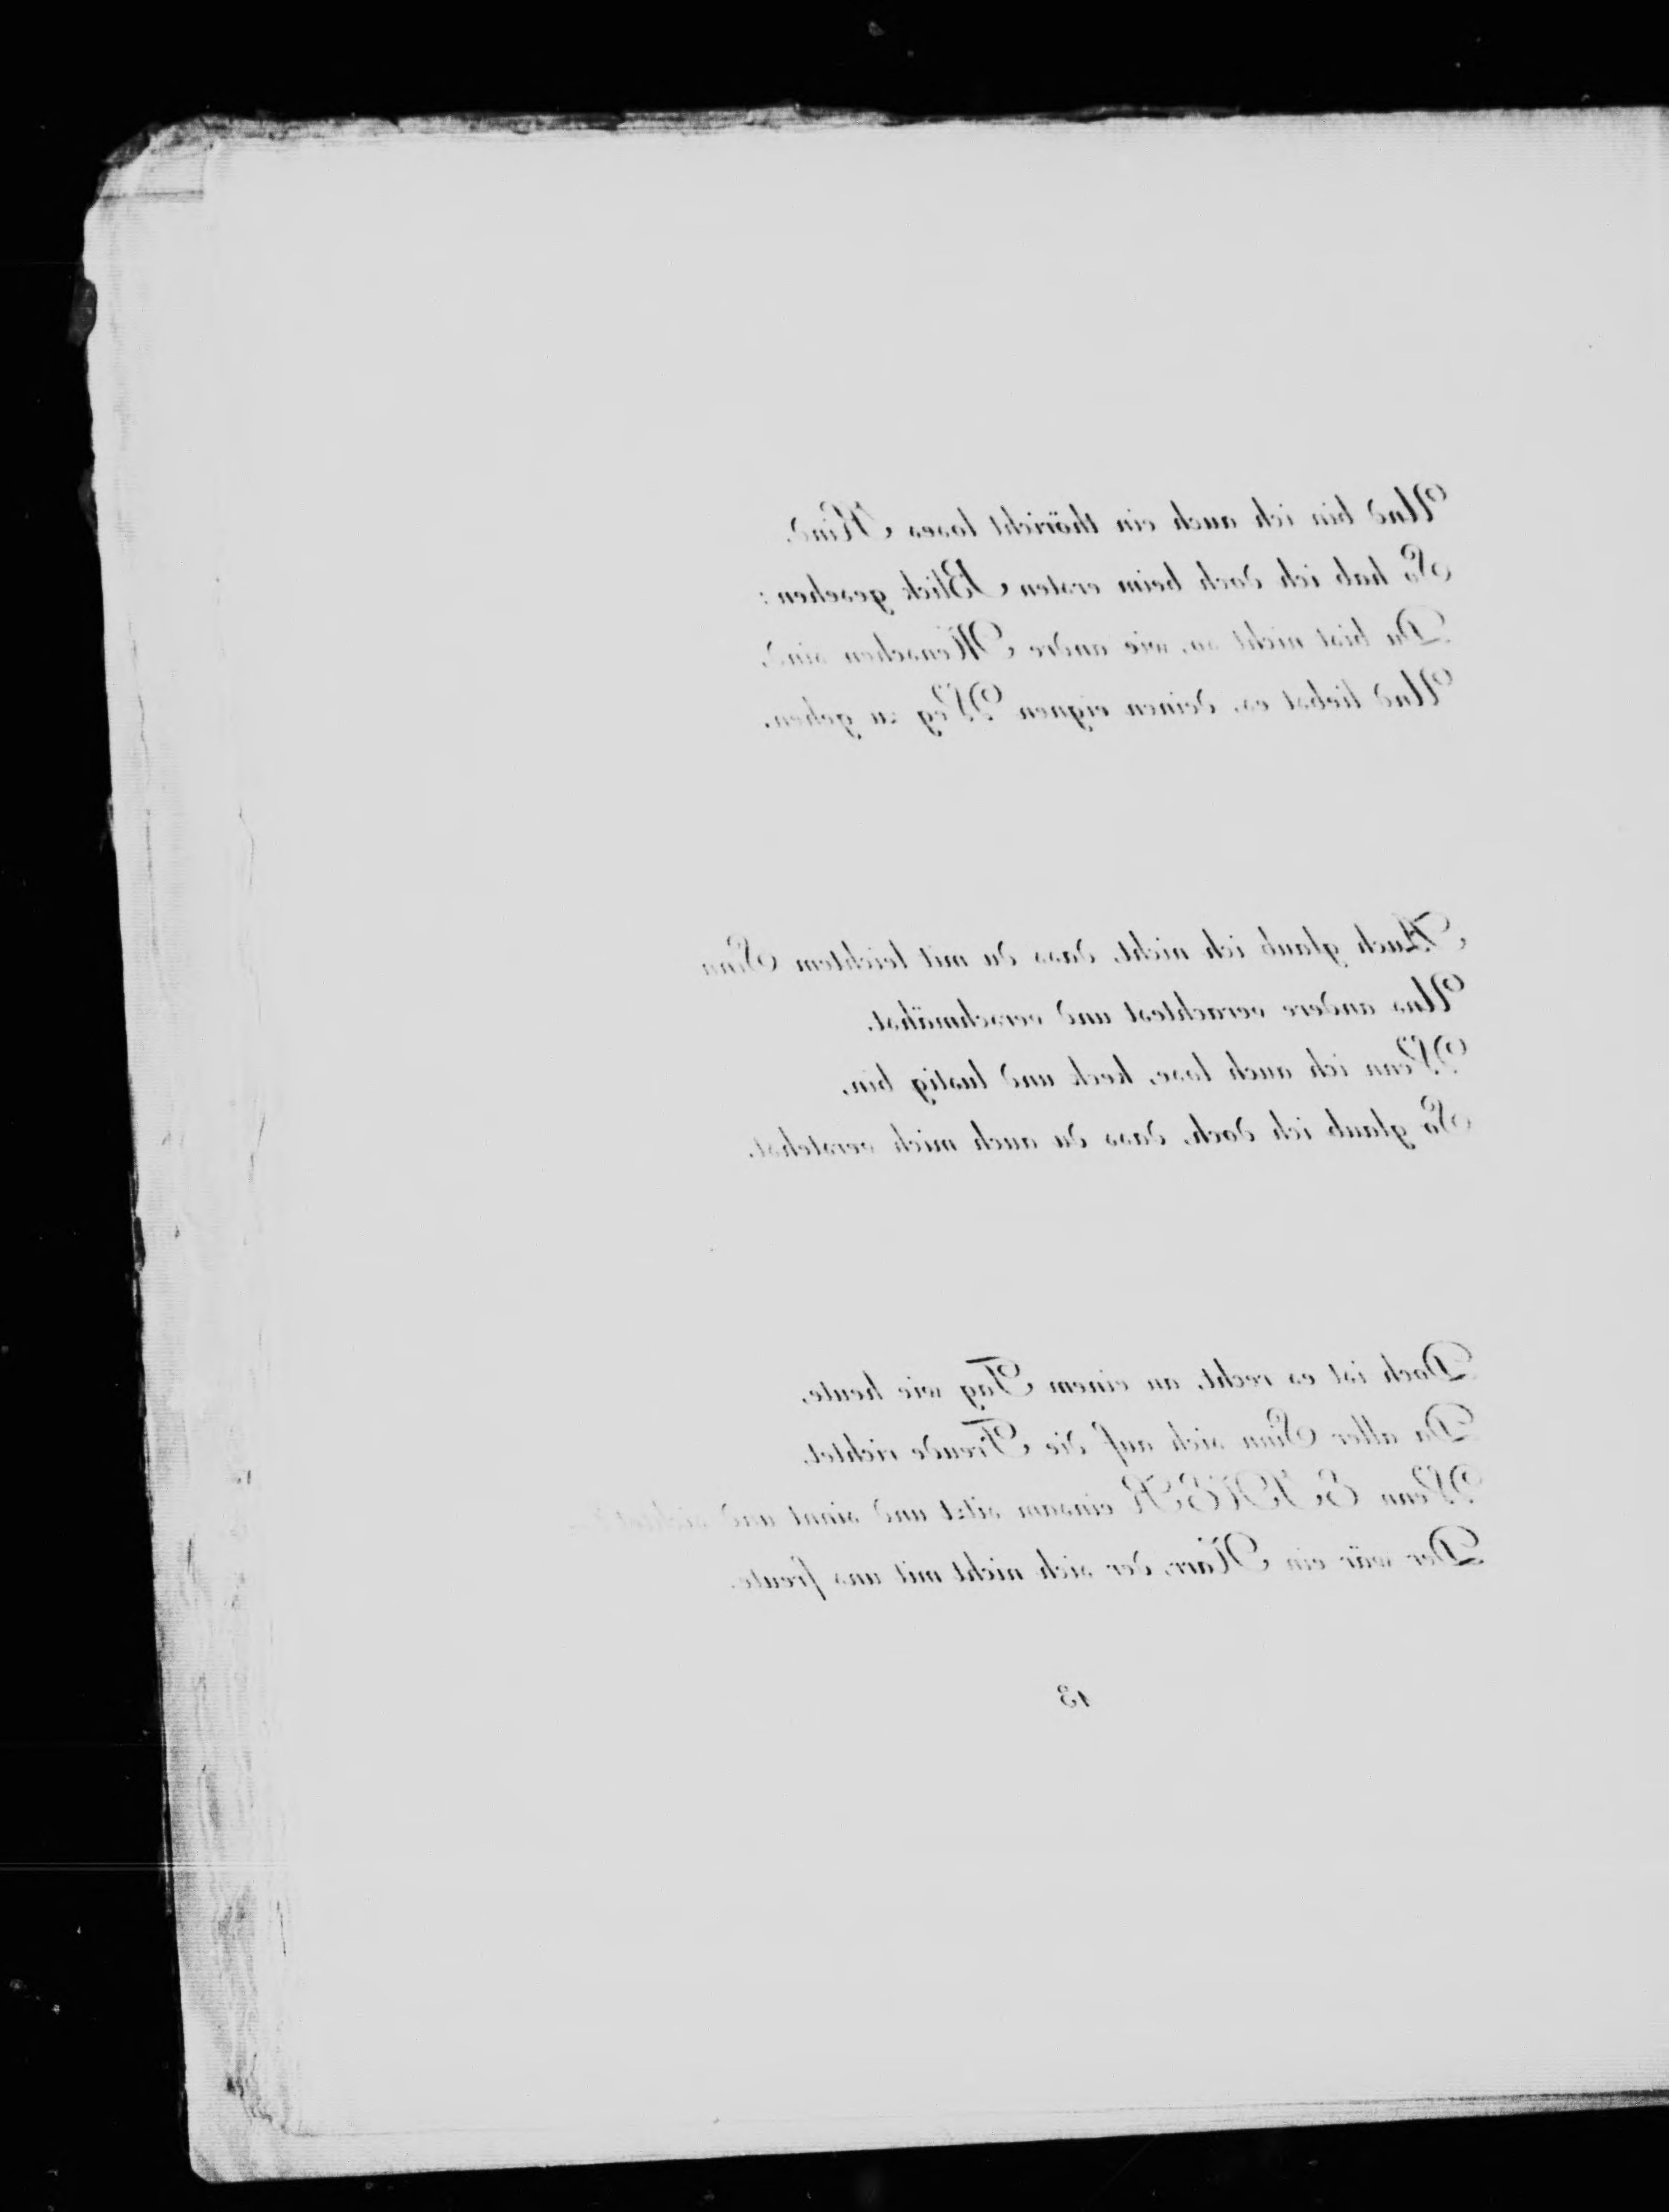 Und bin ich auch ein thöricht loses Kind,
So hab ich doch beim ersten Blick gesehen:
Du bist nicht so, wie andre Menschen sind,
Und liebst es, deinen eignen Weg zu gehen.
Auch glaub ich nicht, dass du mit leichtem Sinn
Uns andere verachtest und verschmähst.
Wenn ich auch lose, keck und lustig bin,
So glaub ich doch, dass du auch mich verstehst.
Doch ist es recht, an einem Tag wie heute,
Da aller Sinn sich auf die Freude richtet,
Wenn EINER einsam sitzt und sinnt und
Der wär ein Narr, der sich nicht mit uns freute.
13